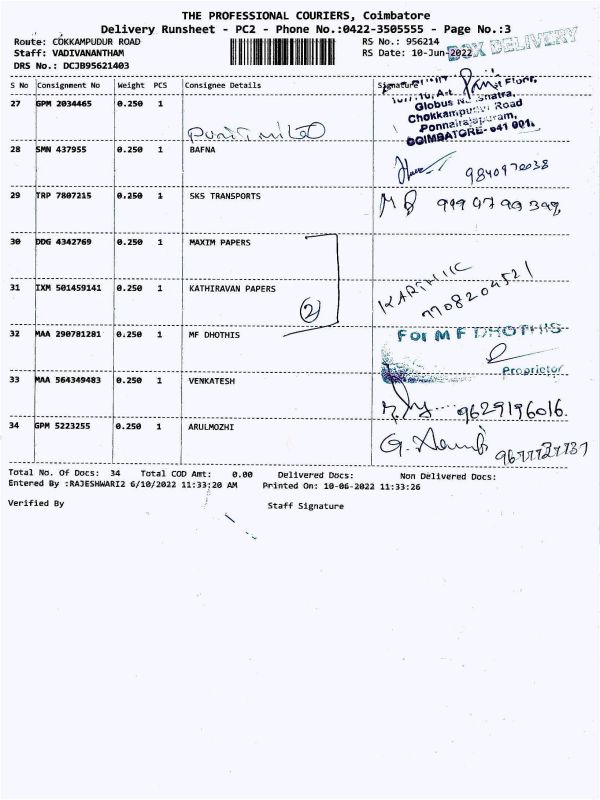 THE PROFESSIONAL COURIERS, Coimbatore
Delivery Runsheet - PC2 - Phone No.:0422-3505555 - Page No.:3
Route: COKKAMPUDUR ROAD RS No.: 956214
Staff: VADIVANANTHAM RS Date: 10-Jun-2022
BOX DELIVERY
DRS No.: DCJB95621403
S No Consignment No Weight PCS Consignee Details Signature
Floor,
27 GPM 2034465 0.250 1
Globus
Chokkampudur Road
Ponnairajapuram,
COIMBATORE- 641 001.
28 SMN 437955 0.250 1 BAFNA
9840970038
29 TRP 7807215 0.250 1 SKS TRANSPORTS
30 DDG 4342769 0.250 1 MAXIM PAPERS
31 IXM 501459141 0.250 1 KATHIRAVAN PAPERS
KARTHIK
7708204521
2
32 MAA 290781281 0.250 1 MF DHOTHIS
For M F DHOTHIS
Proprietor
33 MAA 564349483 0.250 1 VENKATESH
9629196016.
34 GPM 5223255 0.250 1 ARULMOZHI
Total No. Of Docs: 34 Total COD Amt: 0.00 Delivered Docs: Non Delivered Docs:
Entered By :RAJESHWARI2 6/10/2022 11:33:20 AM Printed On: 10-06-2022 11:33:26
Verified By Staff Signature